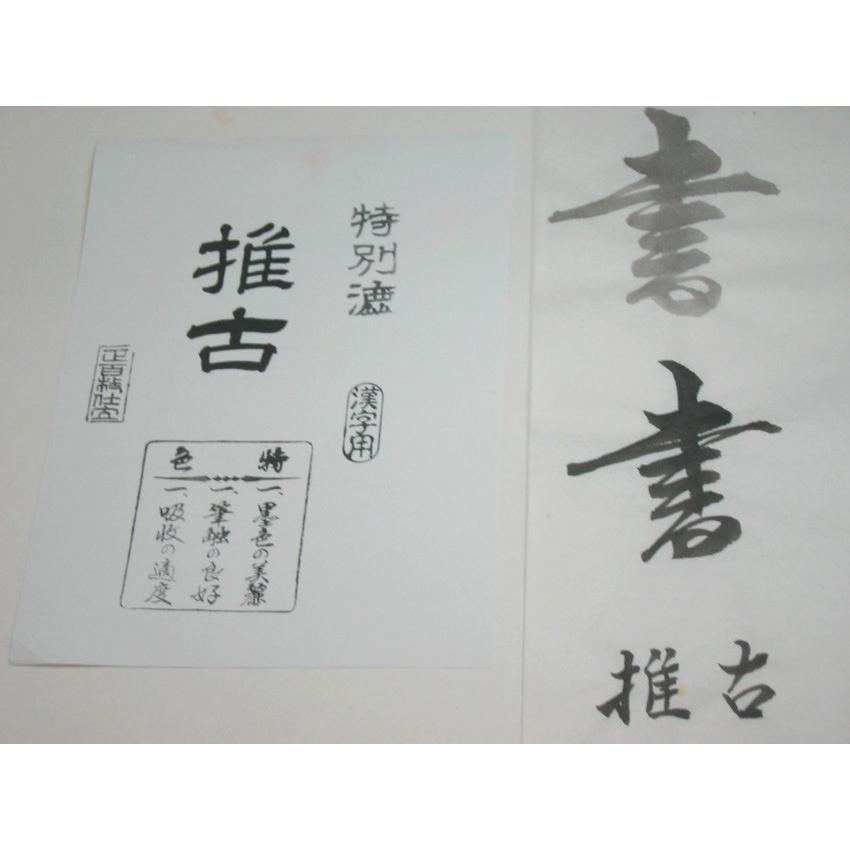 特別漉
推古
漢字用
正百枚仕立
特色
一、墨色の美麗
一、筆触の良好
一、吸收の適度
書
書
推古